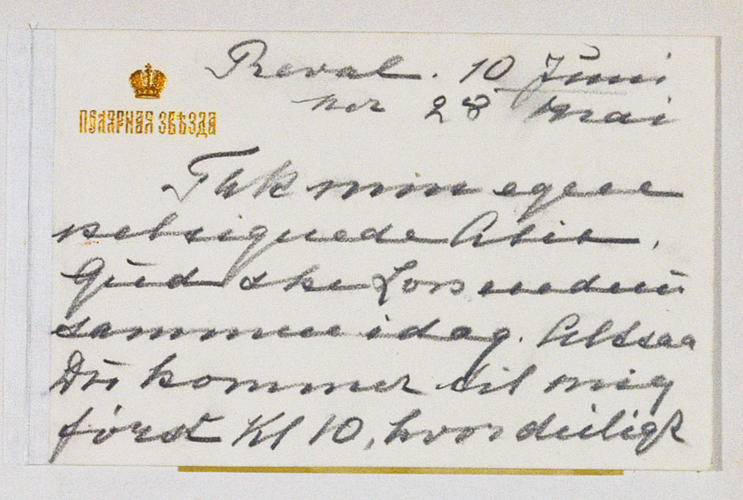 Reval. 10 Juni
28 Mai
ПОЛЯРНАЯ ЗВѢЗДА
Tak min egen
velsignede Alix,
Gud ske Lov
sammen idag. Altsaa
Du kommer til mig
først Kl 10, hvor deiligt